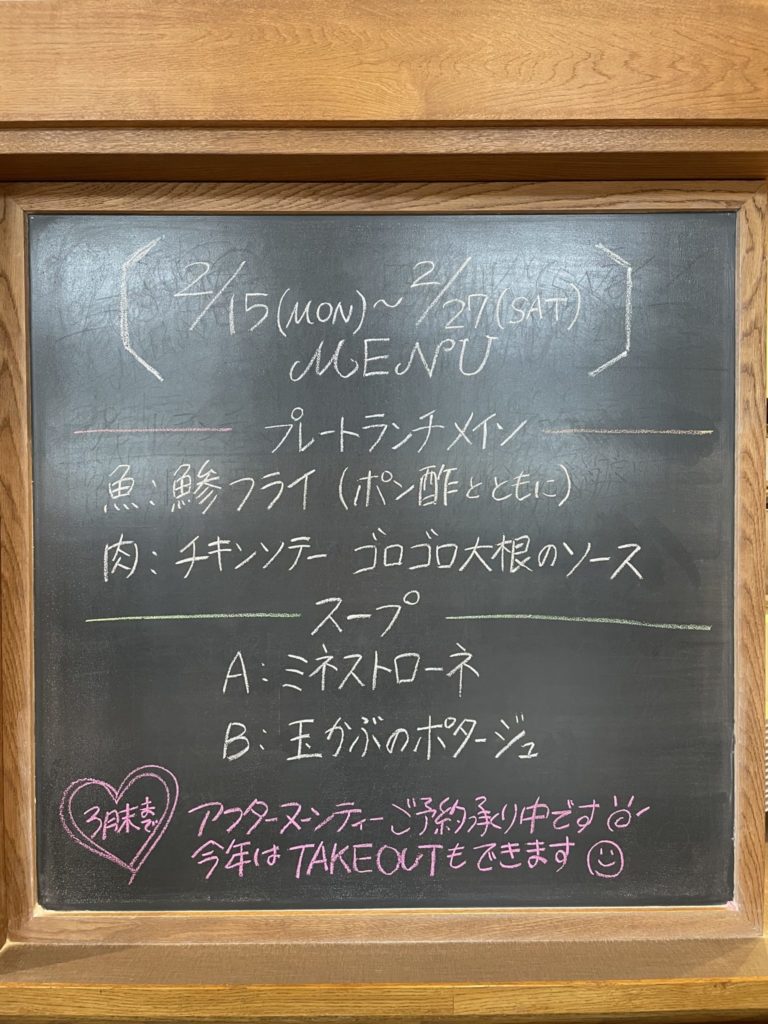 2/15(MON)～2/27(SAT)
MENU
プレートランチメイン
魚:鯵フライ(ポン酢とともに)
肉:チキンソテー ゴロゴロ大根のソース
スープ
A:ミネストローネ
B:玉かぶのポタージュ
3月末まで
アフターヌーンティーご予約承り中です
今年はTAKEOUTもできます